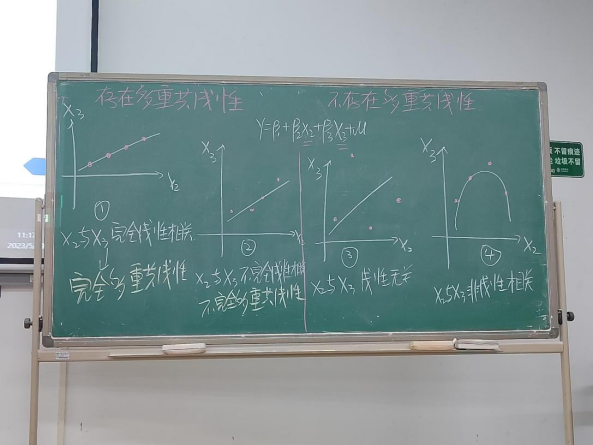 存在多重共线性
不存在多重共线性
Y=β₁+β₂X₂+β₃X₃+μ
X₃
X₂
①
X₂与X₃完全线性相关
↓
完全多重共线性
X₃
X₂
②
X₂与X₃不完全线性相关
不完全多重共线性
X₃
X₂
③
X₂与X₃线性无关
X₃
X₂
④
X₂与X₃非线性相关
不留痕迹
垃圾不留
11:17
2023/5